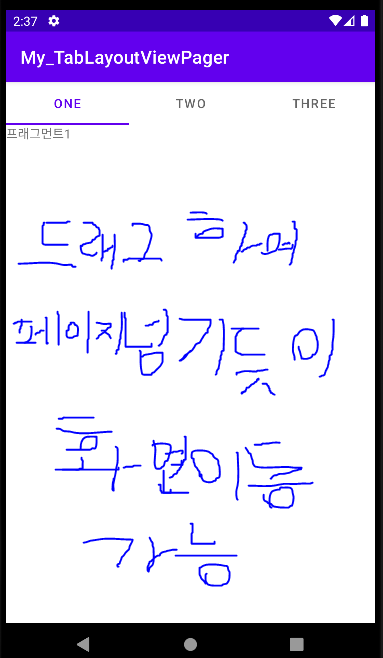 2:37
My_TabLayoutViewPager
ONE TWO THREE
프래그먼트1
드래그 하며
페이지넘기듯이
화면이동
가능